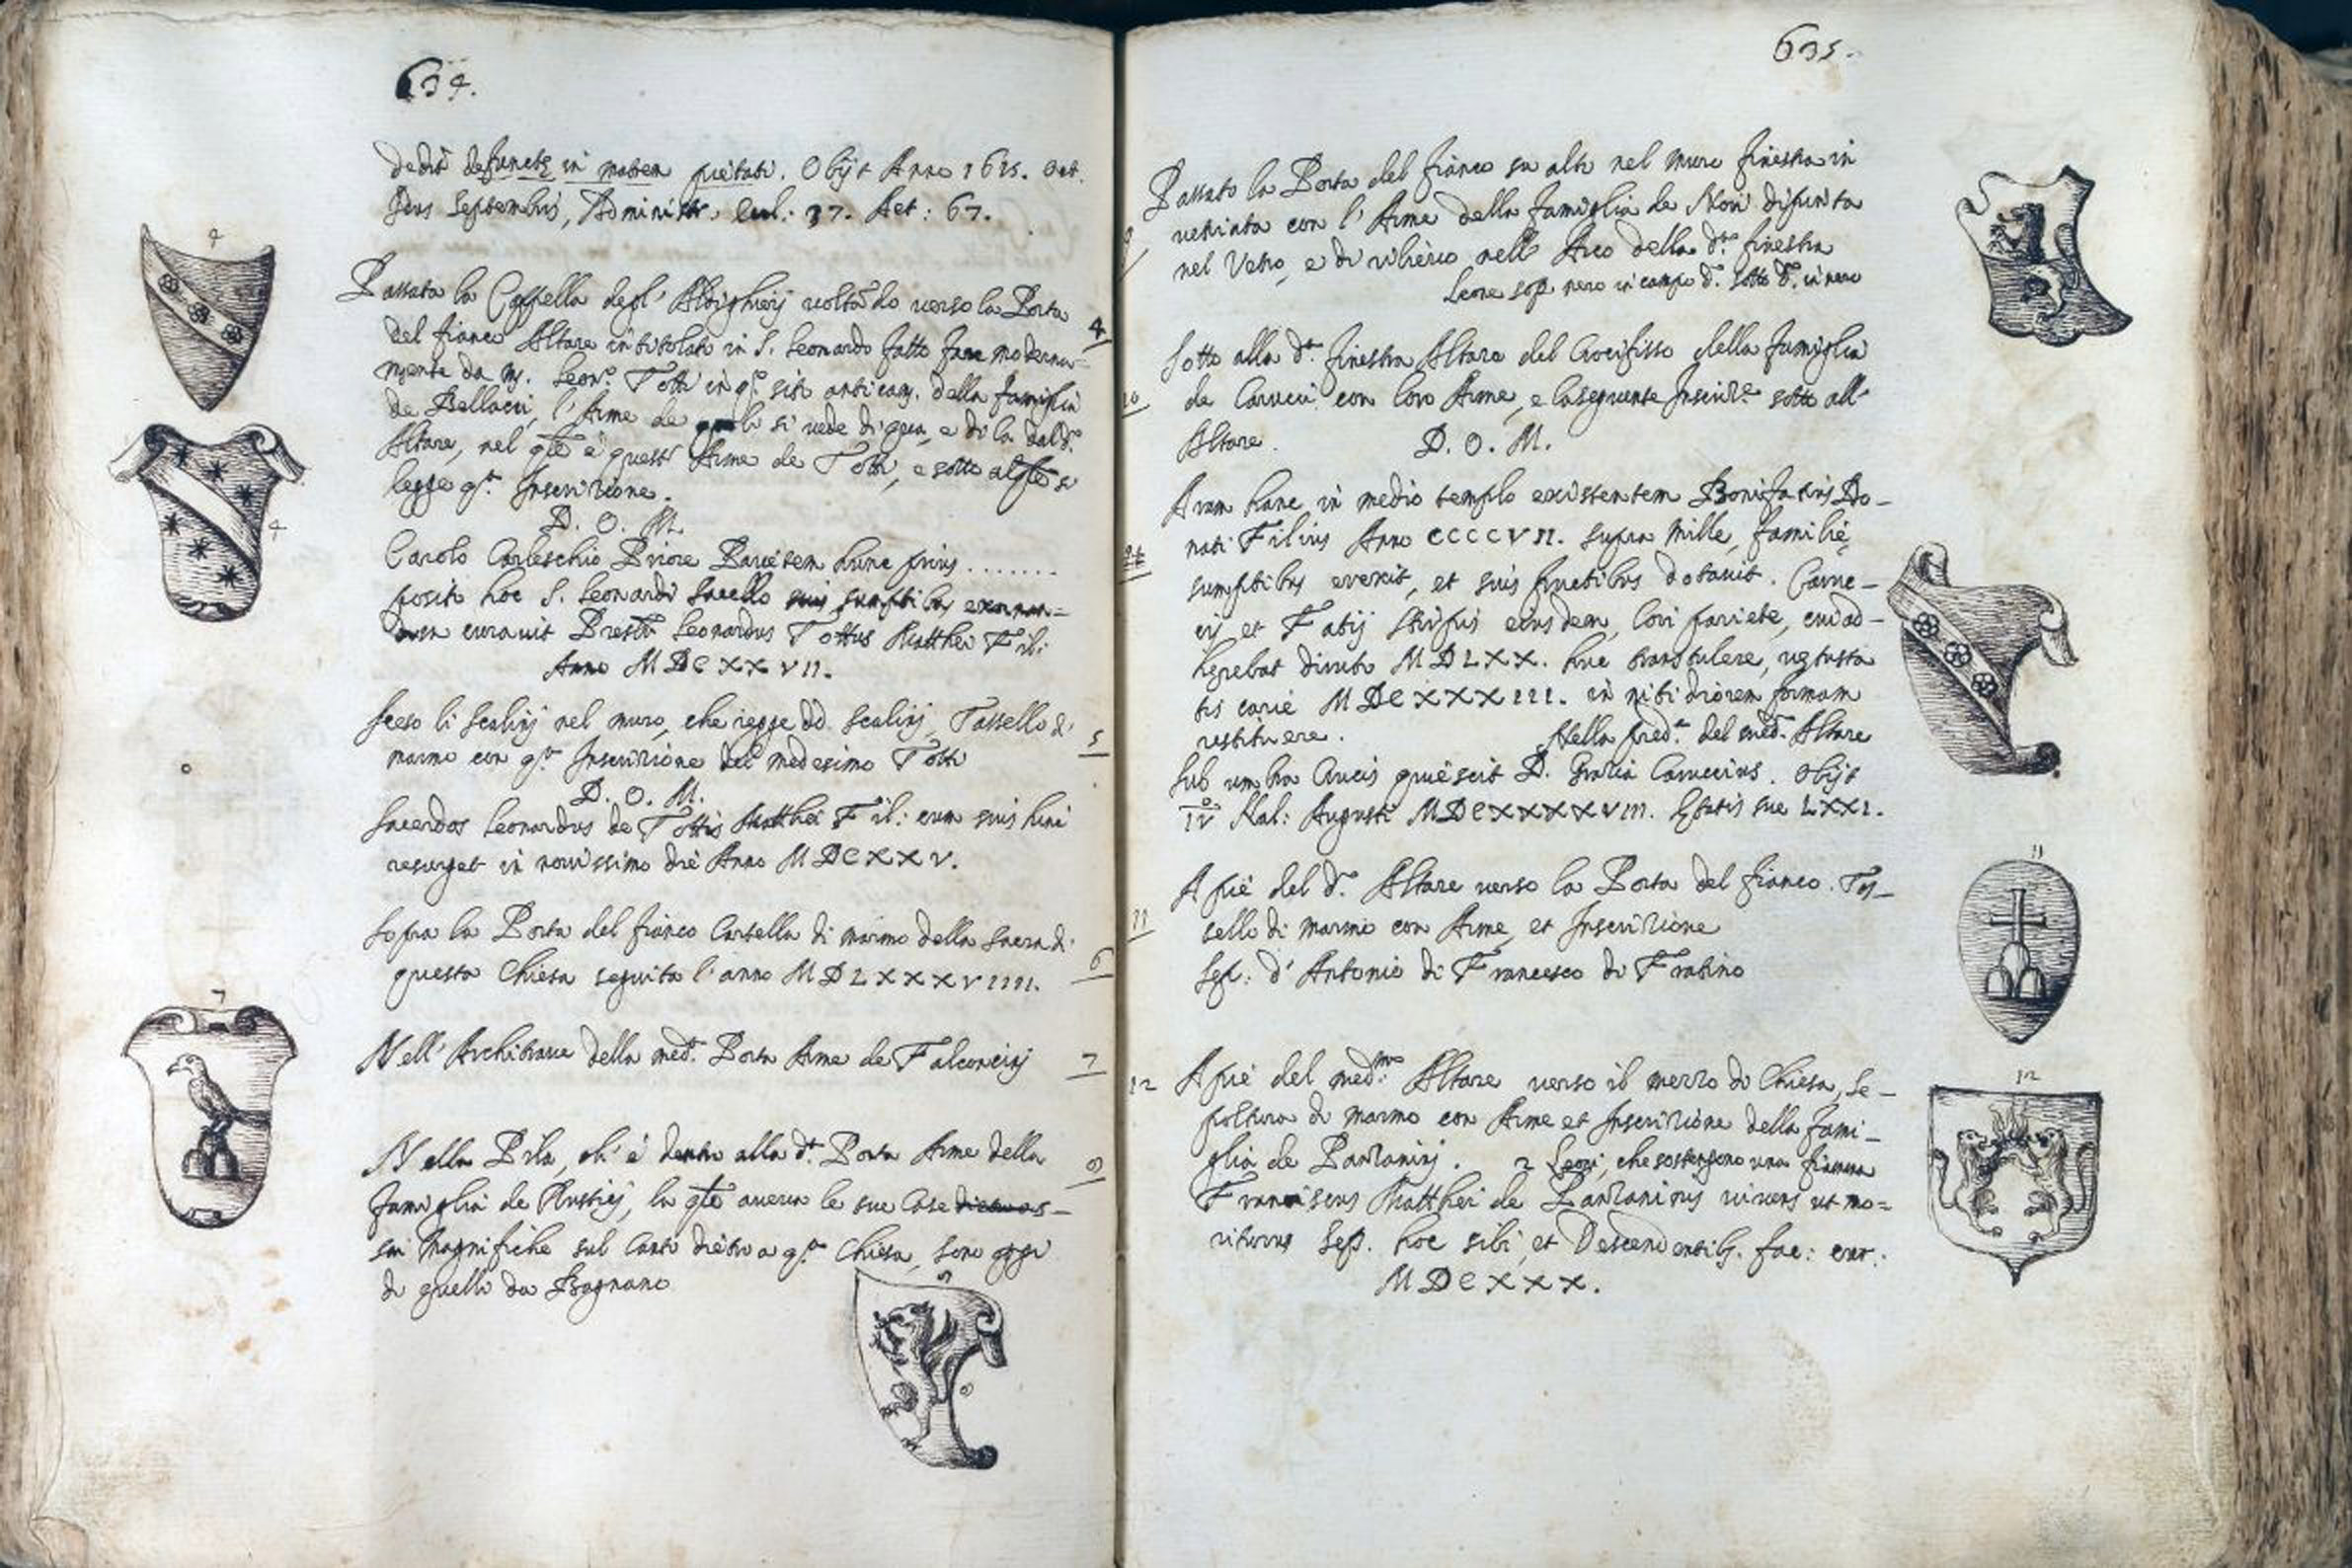 634.
dedit defunctę in matrem pietati. Obijt Anno 1615. Oct.
Idus Septembris, Administr. Cul: 37. Aet: 67.
4
Passata la Cappella degl' Albighieij voltādo verso la Porta
del fianco Altare intitolato in S. Leonardo fatto fare moderna=
mente da m. Leon.º Totti in q.º sito anticam. della famiglia
de Bellacci, l'Arme de quali si vede di qua, e di la dal d.º
Altare, nel qle è quest' Arme de Totti, e sotto al qle si
legge q.ª Inscrizione.
4
4
D. O. M.
Carolo Carleschio Priore Parietem hunc prius .......
posito hoc S. Leonardi Sacello suis sumptibus exornan=
dum curauit Presbr Leonardus Tottus Matthei Fil:
Anno MDCXXVII.
Sceso li Scalinj nel muro, che regge dd. Scalinj, Tassello di
marmo con q.ª Inscrizione del medesimo Totti
5
D. O. M.
Sacerdos Leonardus de Tottis Matthei Fil: cum suis hinc
resurget in nouissimo die Anno MDCXXV.
Sopra la Porta del fianco Cartella di marmo della Sacra di
questa Chiesa seguita l'anno MDLXXXVIIII.
6
7
Nell' Architraue della med.ª Porta Arme de Falconcinj
7
Nella Pila, ch' è dentro alla d.ª Porta Arme della
famiglia de Rusticj, la qle aueua le sue Case
magnifiche sul Canto dietro a q.ª Chiesa, sono oggi
di quelli da Bagnano
8
8
635.
Passato la Porta del fianco su alto nel muro finestra in
vetriata con l'Arme della famiglia de Nori dipinta
nel Vetro, e di rilieuo nell' Arco della d.ª finestra
Leone sop. nero in campo d. sotto d. in nero
9
Sotto alla d.ª finestra Altare del Crocifisso della famiglia
de Carucci con loro Arme, e la seguente Inscriz.e sotto all'
Altare.
10
D. O. M.
Aram hanc in medio templo existentem Bonifatius Do-
nati Filius Anno CCCCVII. supra mille, familię
sumptibus erexit, et suis fructibus dotauit. Carue-
cij et Fatij stirpis eiusdem, Cori pariete, cui ad-
hęrebat diruto MDLXX. huc transtulere, uętusta
tis carie MDCXXXIII. in nitidiorem formam
restituere.
Nella pred.ª del med.º Altare
Sub umbra Crucis quiescit D. Gratia Caruccius. Obijt
IV Kal: Augusti MDCXXXXVIII. Ętatis sue LXXI.
11
A pie del d.º Altare verso la Porta del fianco. Tas-
sello di marmo con Arme, et Inscrizione
Sep: d' Antonio di Francesco di Frosino
11
12
A pie del med.mo Altare verso il mezzo di Chiesa, Se-
poltura di marmo con Arme et Inscrizione della fami-
glia de Panzaninj. 2 Leoni, che sostengono una fiamma
Franciscus Matthei de Panzaninis viuens ut mo=
riturus Sep. hoc sibi, et Descendentib. fac: cur:
MDCXXX.
12